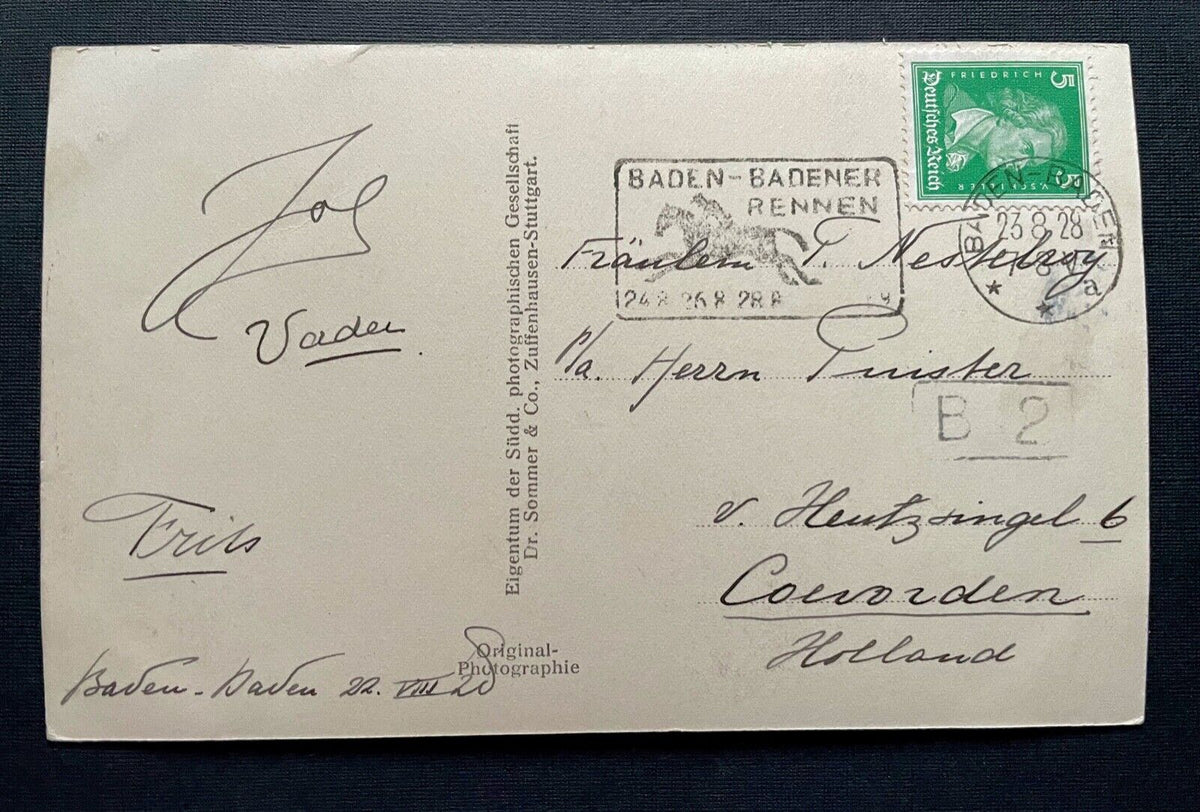 Jol
Vader
Frits
Baden-Baden 22. VIII 28
Eigentum der Südd. photographischen Gesellschaft
Dr. Sommer & Co., Zuffenhausen-Stuttgart.
Original-
Photographie
BADEN-BADENER
RENNEN
24.8. 26.8. 28.8
FRIEDRICH
V. SCHILLER
Deutsches Reich
5
5
BADEN-BADEN
23.8.28
a
Fräulein T. Nesselroy
p/a. Herrn Puister
B 2
v. Heutzsingel 6
Coevorden
Holland